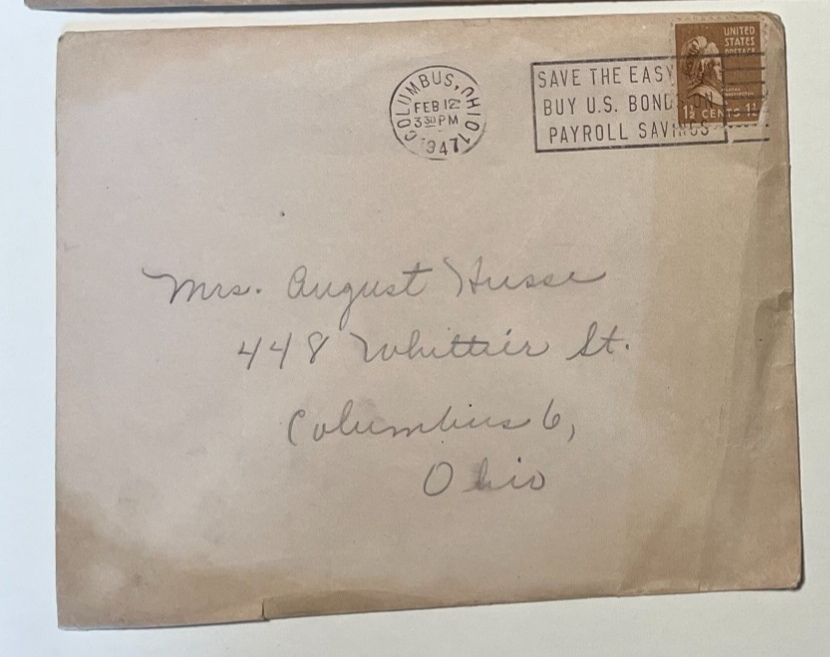 COLUMBUS, OHIO
FEB 12
3 30 PM
1947
SAVE THE EASY
BUY U.S. BONDS ON
PAYROLL SAVINGS
UNITED
STATES
POSTAGE
1½ CENTS 1½
Mrs. August Husse
448 Whittier St.
Columbus 6,
Ohio